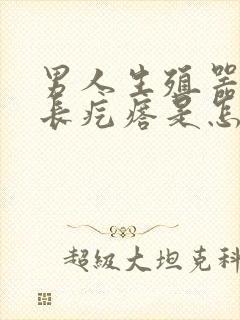 男人生殖器
长疙瘩是怎
超級大坦克科